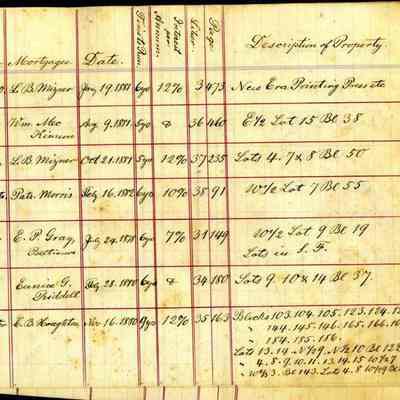 Mortgagee Date. Time to Run. Interest per Annum. Liber. Page Description of Property.
L. B. Mizner Jany 19. 1881 6yo 12% 3 473 New Era Printing Press etc
Wm. Mc Aug 9. 1881 5yo & 36 460 E½ Lot 15 Bl 38
L. B. Mizner Oct 21. 1881 5yo 12% 37 235 Lots 4. 7 & 8 Bl 50
Patk Morris Feby 16. 1882 6yo 10% 38 91 W½ Lot 7 Bl 55
E. P. Gray, July 24. 1878 6yo 7% 31 149 W½ Lot 9 Bl 19
Lots in S. F.
Eunice G. 28. 1880 6yo & 34 180 Lots 9. 10 & 14 Bl 37.
Riddell
E. B. Houghton Nov 16. 1880 9yo 12% 35 163 Blocks 103. 104. 105. 123. 124.
" 144. 145. 146. 165. 166.
" 184. 185. 186.
Lots 13. 14. N½ 9. N½ 10 Bl
" 4. 5. 9. 10. 11. 13. 14. 15
" Bl 143. Lot 4. 8